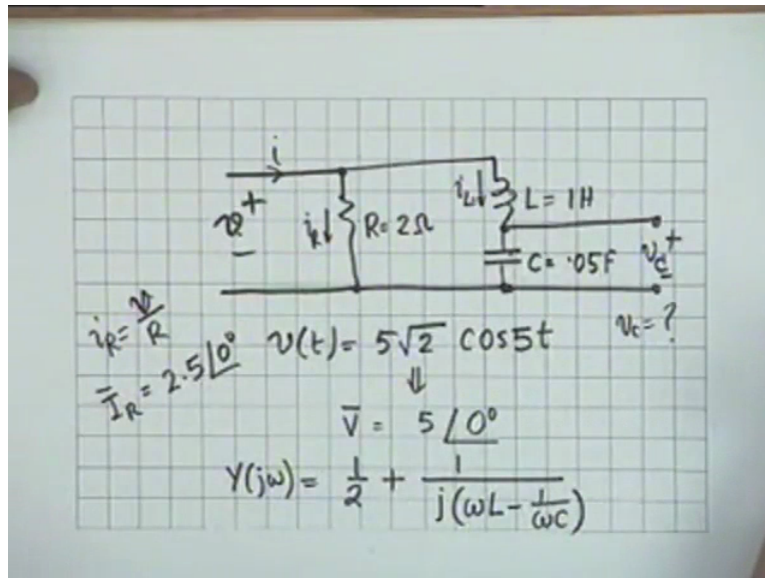 i
v + −
i_R↓ R = 2Ω
i_L↓ L = 1H
C = .05F
v_c +
−
v_c = ?
i_R = v/R
Ī_R = 2.5∠0°
v(t) = 5√2 cos5t
⇓
V̄ = 5∠0°
Y(jω) = 1/2 + 1/j(ωL − 1/ωC)